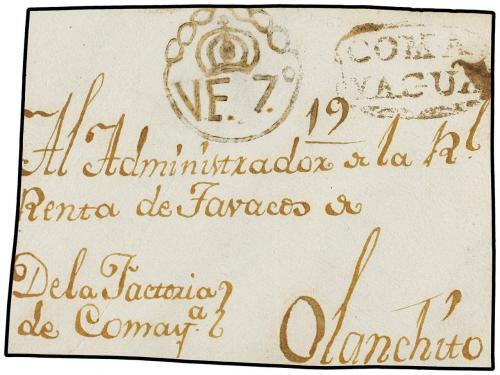 VE. 7.º
COMA
YAGUA
19
Al Administrador d la Rl
Renta de Tavacos d
De la Factoria
de Comaya
Olanchito